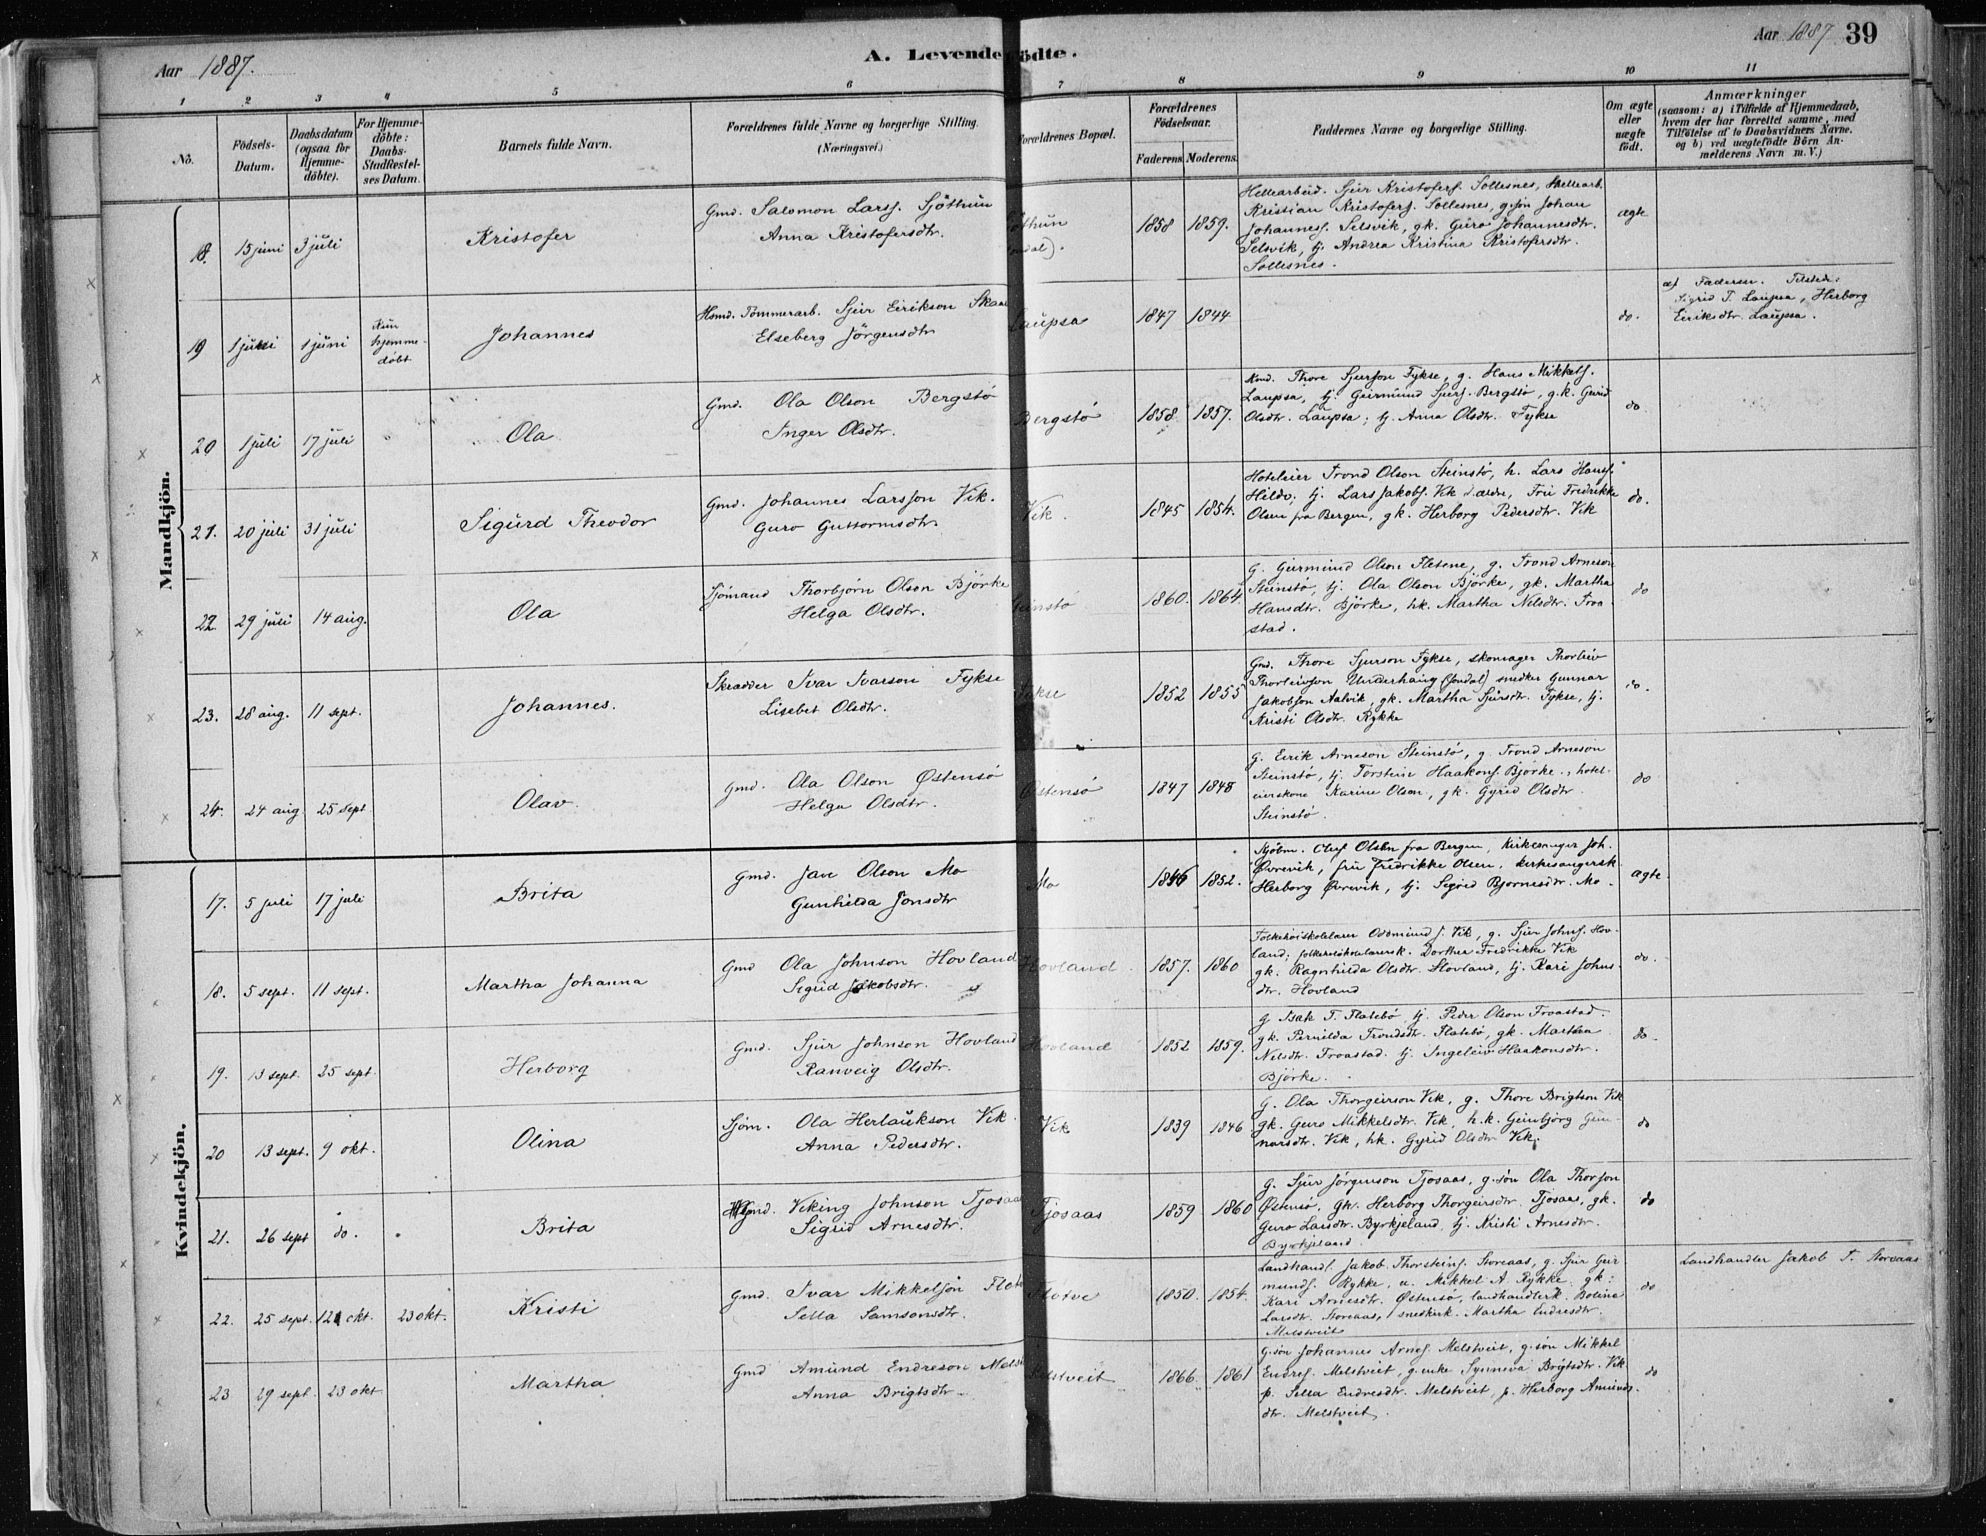 Aar 1887.
A. Levendefödte.
Aar 1887. 39
1 2 3 4 5 6 7 8 9 10 11
No.
Födsels-Datum.
Daabsdatum (ogsaa for Hjemmedöbte).
For Hjemmedöbte: Daabs-Stadfæstelses Datum.
Barnets fulde Navn.
Forældrenes fulde Navne og borgerlige Stilling.
(Næringsvei.)
Forældrenes Bopæl.
Forældrenes Födselsaar.
Faderens. Moderens.
Faddernes Navne og borgerlige Stilling.
Om ægte eller uægte födt.
Anmærkninger
(saasom: a) i Tilfælde af Hjemmedaab,
hvem der har forrettet samme, med
Tilföielse af to Daabsvidners Navne.
og b) ved uægtefödte Börn Anmelderens Navn m. V.)
Mandkjön.
18. 15 juni 3 juli Kristofer
Gmd. Salomon Larss. Sjöthun
Anna Kristofersdtr.
1858 1859.
Hellearbeid. Sjur Kristofers. Sollesnes, Hellearb.
Kristian Kristofers. Sollesnes, g.søn Johan
Johanness. Selsvik, gk. Guro Johannesdtr.
Selsvik, tj. Andrea Kristina Kristofersdtr.
Sollesnes.
ægte
19 1 juni 1 juni Kun hjemmedöbt Johannes
Hsmd. Tömmerarb. Sjur Eirikson Skaa
Elseberg Jörgensdtr
Laupsa 1847 1844 do.
af Faderen. Tilsted:
Sigrid T. Laupsa, Herborg
Eiriksdtr. Laupsa.
20 1 juli 17 juli Ola
Gmd. Ola Olson Bergstö
Inger Olsdtr.
Bergstö 1858. 1857.
Kmd. Thore Sjurson Fykse, g. Hans Mikkels.
Laupsa, tj. Geirmund Sjurs. Bergstö, g.k. Gurid
Olsdtr. Laupsa; tj. Anna Olsdtr. Fykse
do
21. 20 juli 31 juli Sigurd Theodor
Gmd. Johannes Larsson Vik.
Guro Guttormsdtr.
Vik. 1845 1854.
Hoteleier Trond Olson Steinstö, h. Lars Hans.
Hildo. tj. Lars Jakobs. Vik d. ældre, Fru Fredrikke
Olsen fra Bergen, gk. Herborg Pedersdtr. Vik
do.
22. 29 juli 14 aug. Ola
Sjömand Thorbjörn Olson Björke
Helga Olsdtr.
Steinstö 1860. 1864.
G. Geirmund Olson Flesene, g. Trond Arneson
Steinstö, tj. Ola Olson Björke, gk. Martha
Hansdtr. Björke, hk. Martha Nilsdtr. Troastad.
do
23. 28 aug. 11 sept. Johannes.
Skrædder Ivar Ivarson Fykse
Lisebet Olsdtr.
Fykse 1852 1855
Gmd. Thore Sjurson Fykse, skomager Thorleiv
Thorleivson Underhaug (Jondal) snedker Gunnar
Jakobson Aalvik, gk. Martha Sjursdtr. Fykse, tj.
Kristi Olsdtr. Rykke
do.
24. 24 aug. 25 sept. Olav.
Gmd. Ola Olson Østensö
Helga Olsdtr.
Østensö 1847 1848
G. Eirik Arneson Steinstö, g. Trond Arneson
Steinstö, tj. Torstein Haakons. Björke., hoteleierskone
Karine Olsen, gk. Gyrid Olsdtr.
Steinstö.
do
Kvindekjön.
17. 5 juli 17 juli Brita
Gmd. Jan Olson Mo
Gunhilda Jonsdtr
Mo 1846 1852.
Kjöbm. Oluf Olsen fra Bergen, kirkesanger Joh.
Øvrevik, fru Fredrikke Olsen, kirkesangersk.
Herborg Øvrevik, tj. Sigrid Bjornesdtr. Mo.
ægte
18. 5 sept. 11 sept. Martha Johanna
Gmd Ola Johnson Hovland
Sigrid Jakobsdtr.
Hovland. 1857. 1860
Folkehöiskolelærer Oddmund J. Vik, g. Sjur Johns. Hovland,
folkehöiskolelærersk. Dorthea Fredrikke Vik
gk. Ragnhilda Olsdtr. Hovland, tj. Kari Johnsdtr.
Hovland
do.
19. 13 sept. 25 sept. Herborg
Gmd. Sjur Johnson Hovland
Ranveig Olsdtr.
Hovland 1852 1859.
g Isak T. Flatebö, tj. Peder Olson Troastad.
gk. Pernilda Trondsdtr. Flatebö, gk. Martha
Nilsdtr. Troastad. tj. Ingeleiv Haakonsdtr.
Björke.
do.
20 13 sept. 9 okt. Olina
Sjöm. Ola Herlaukson Vik.
Anna Pedersdtr.
Vik 1839 1846
G. Ola Thorgeirson Vik, g. Thore Brigtson Vik
gk. Guro Mikkelsdtr. Vik, h.k. Geirbjörg Gunnarsdtr.
Vik, hk. Gyrid Olsdtr. Vik.
do
21. 26 sept do. Brita
Gmd. Viking Johnson Tjosaa
Sigrid Arnesdtr.
Tjosaas 1859 1860
G. Sjur Jörgenson Tjosaas, g.søn Ola Thorson
Østensö, gk. Herborg Thorgeirsdtr. Tjosaas, gk.
Guro Larsdtr. Byrkjeland, tj. Kristi Arnesdtr.
Byrkjeland.
do
22. 25 sept. 12 okt. 23 okt. Kristi
Gmd. Ivar Mikkelson Flot
Sella Samsonsdtr.
Flotve 1850. 1854.
Landhandl. Jakob Thorsteins. Storeaas, g. Sjur Geirmunds.
Rykke, u. Mikkel A. Rykke. gk:
Kari Arnesdtr. Østensö, landhandlerk. Bolina
Larsdtr. Storeaas, snedkerk. Martha Endresdtr.
Melstveit
do
Landhandler Jakob T. Storeaas
23 29 sept. 23 okt Martha
Gmd Amund Endreson Mels
Anna Brigtsdtr.
Melstveit 1866. 1861
G.søn Johannes Arnes. Melstveit, g.søn Mikkel
Endres. Melstveit, g.enke Synneva Brigtsdtr. Vik
p. Sella Endresdtr. Melstveit, p. Herborg Amundsdtr.
Melstveit.
do